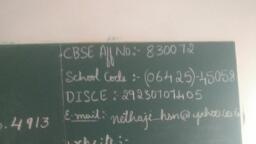 CBSE Aff No:- 830072
School Code :- (06425)-45058
DISCE : 29230707405
. 4913
E-mail: nethaji.hsn@yahoo.co.in